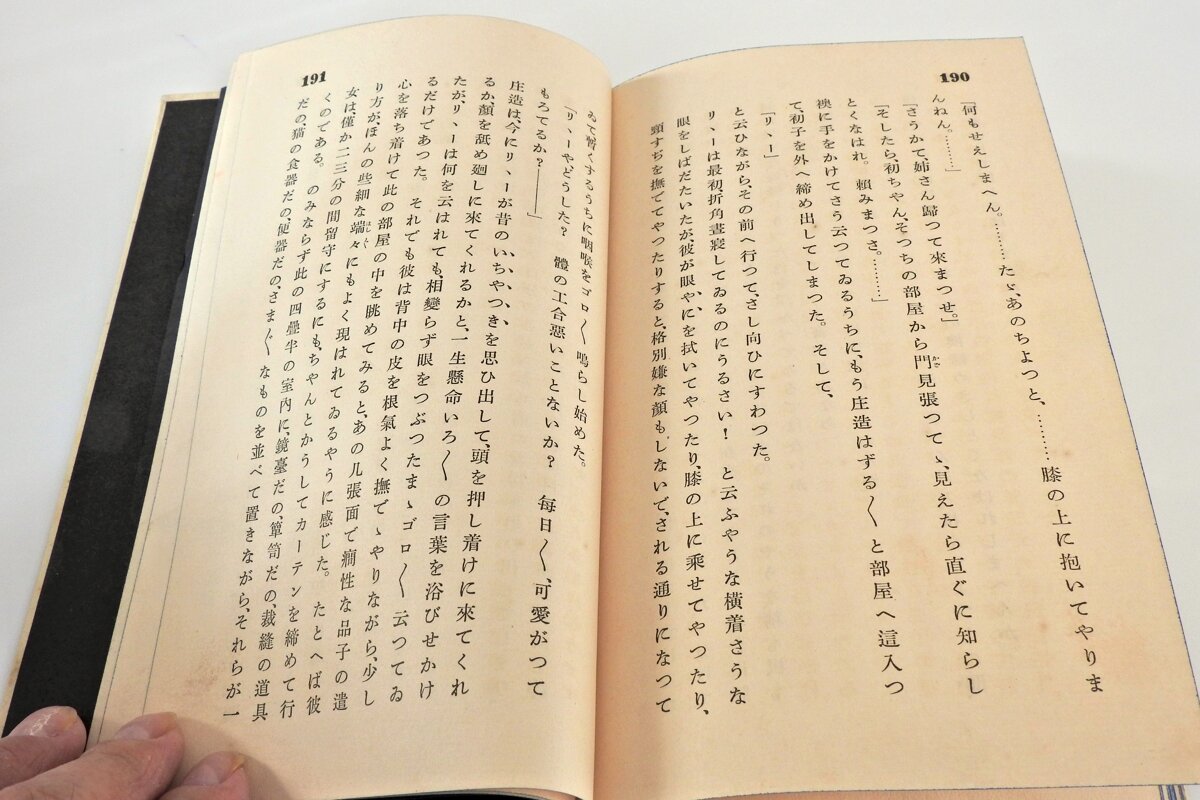 190
「何もせえしまへん。………たゞ、あのちよつと、………膝の上に抱いてやりま
んねん。………」
「さうかて、姉さん歸つて來まつせ。」
「そしたら、初ちやん、そつちの部屋から門見張つてゝ、見えたら直ぐに知らし
かど
とくなはれ。賴みまつさ。………」
襖に手をかけてさう云つてゐるうちに、もう庄造はずる〳〵と部屋へ這入つ
て、初子を外へ締め出してしまつた。そして、
「リヽー」
と云ひながら、その前へ行つて、さし向ひにすわつた。
リヽーは最初、折角晝寢してゐるのにうるさい！と云ふやうな橫着さうな
眼をしばだたいたが、彼が眼やにを拭いてやつたり、膝の上に乘せてやつたり、
頸すぢを撫でてやつたりすると、格別嫌な顏もしないで、される通りになつて
191
ゐて暫くするうちに咽喉をゴロ〳〵鳴らし始めた。
「リヽーやどうした？體の工合惡いことないか？每日〳〵、可愛がつて
もろてるか？――」
庄造は、今にリヽーが昔のいちやつきを思ひ出して、頭を押し着けに來てくれ
るか、顏を舐め廻しに來てくれるかと、一生懸命いろ〳〵の言葉を浴びせかけ
たが、リヽーは何を云はれても、相變らず眼をつぶつたまゝゴロ〳〵云つてゐ
るだけであつた。それでも彼は背中の皮を根氣よく撫でゝやりながら、少し
心を落ち着けて此の部屋の中を眺めてみると、あの几張面で癇性な品子の遣
り方が、ほんの些細な端々にもよく現はれてゐるやうに感じた。たとへば彼
はし〴〵
女は、僅か二三分の間留守にするにも、ちやんとかうしてカーテンを締めて行
くのである。のみならず此の四疊半の室內に、鏡臺だの、簞笥だの、裁縫の道具
だの、猫の食器だの、便器だの、さま〴〵なものを並べて置きながら、それらが一